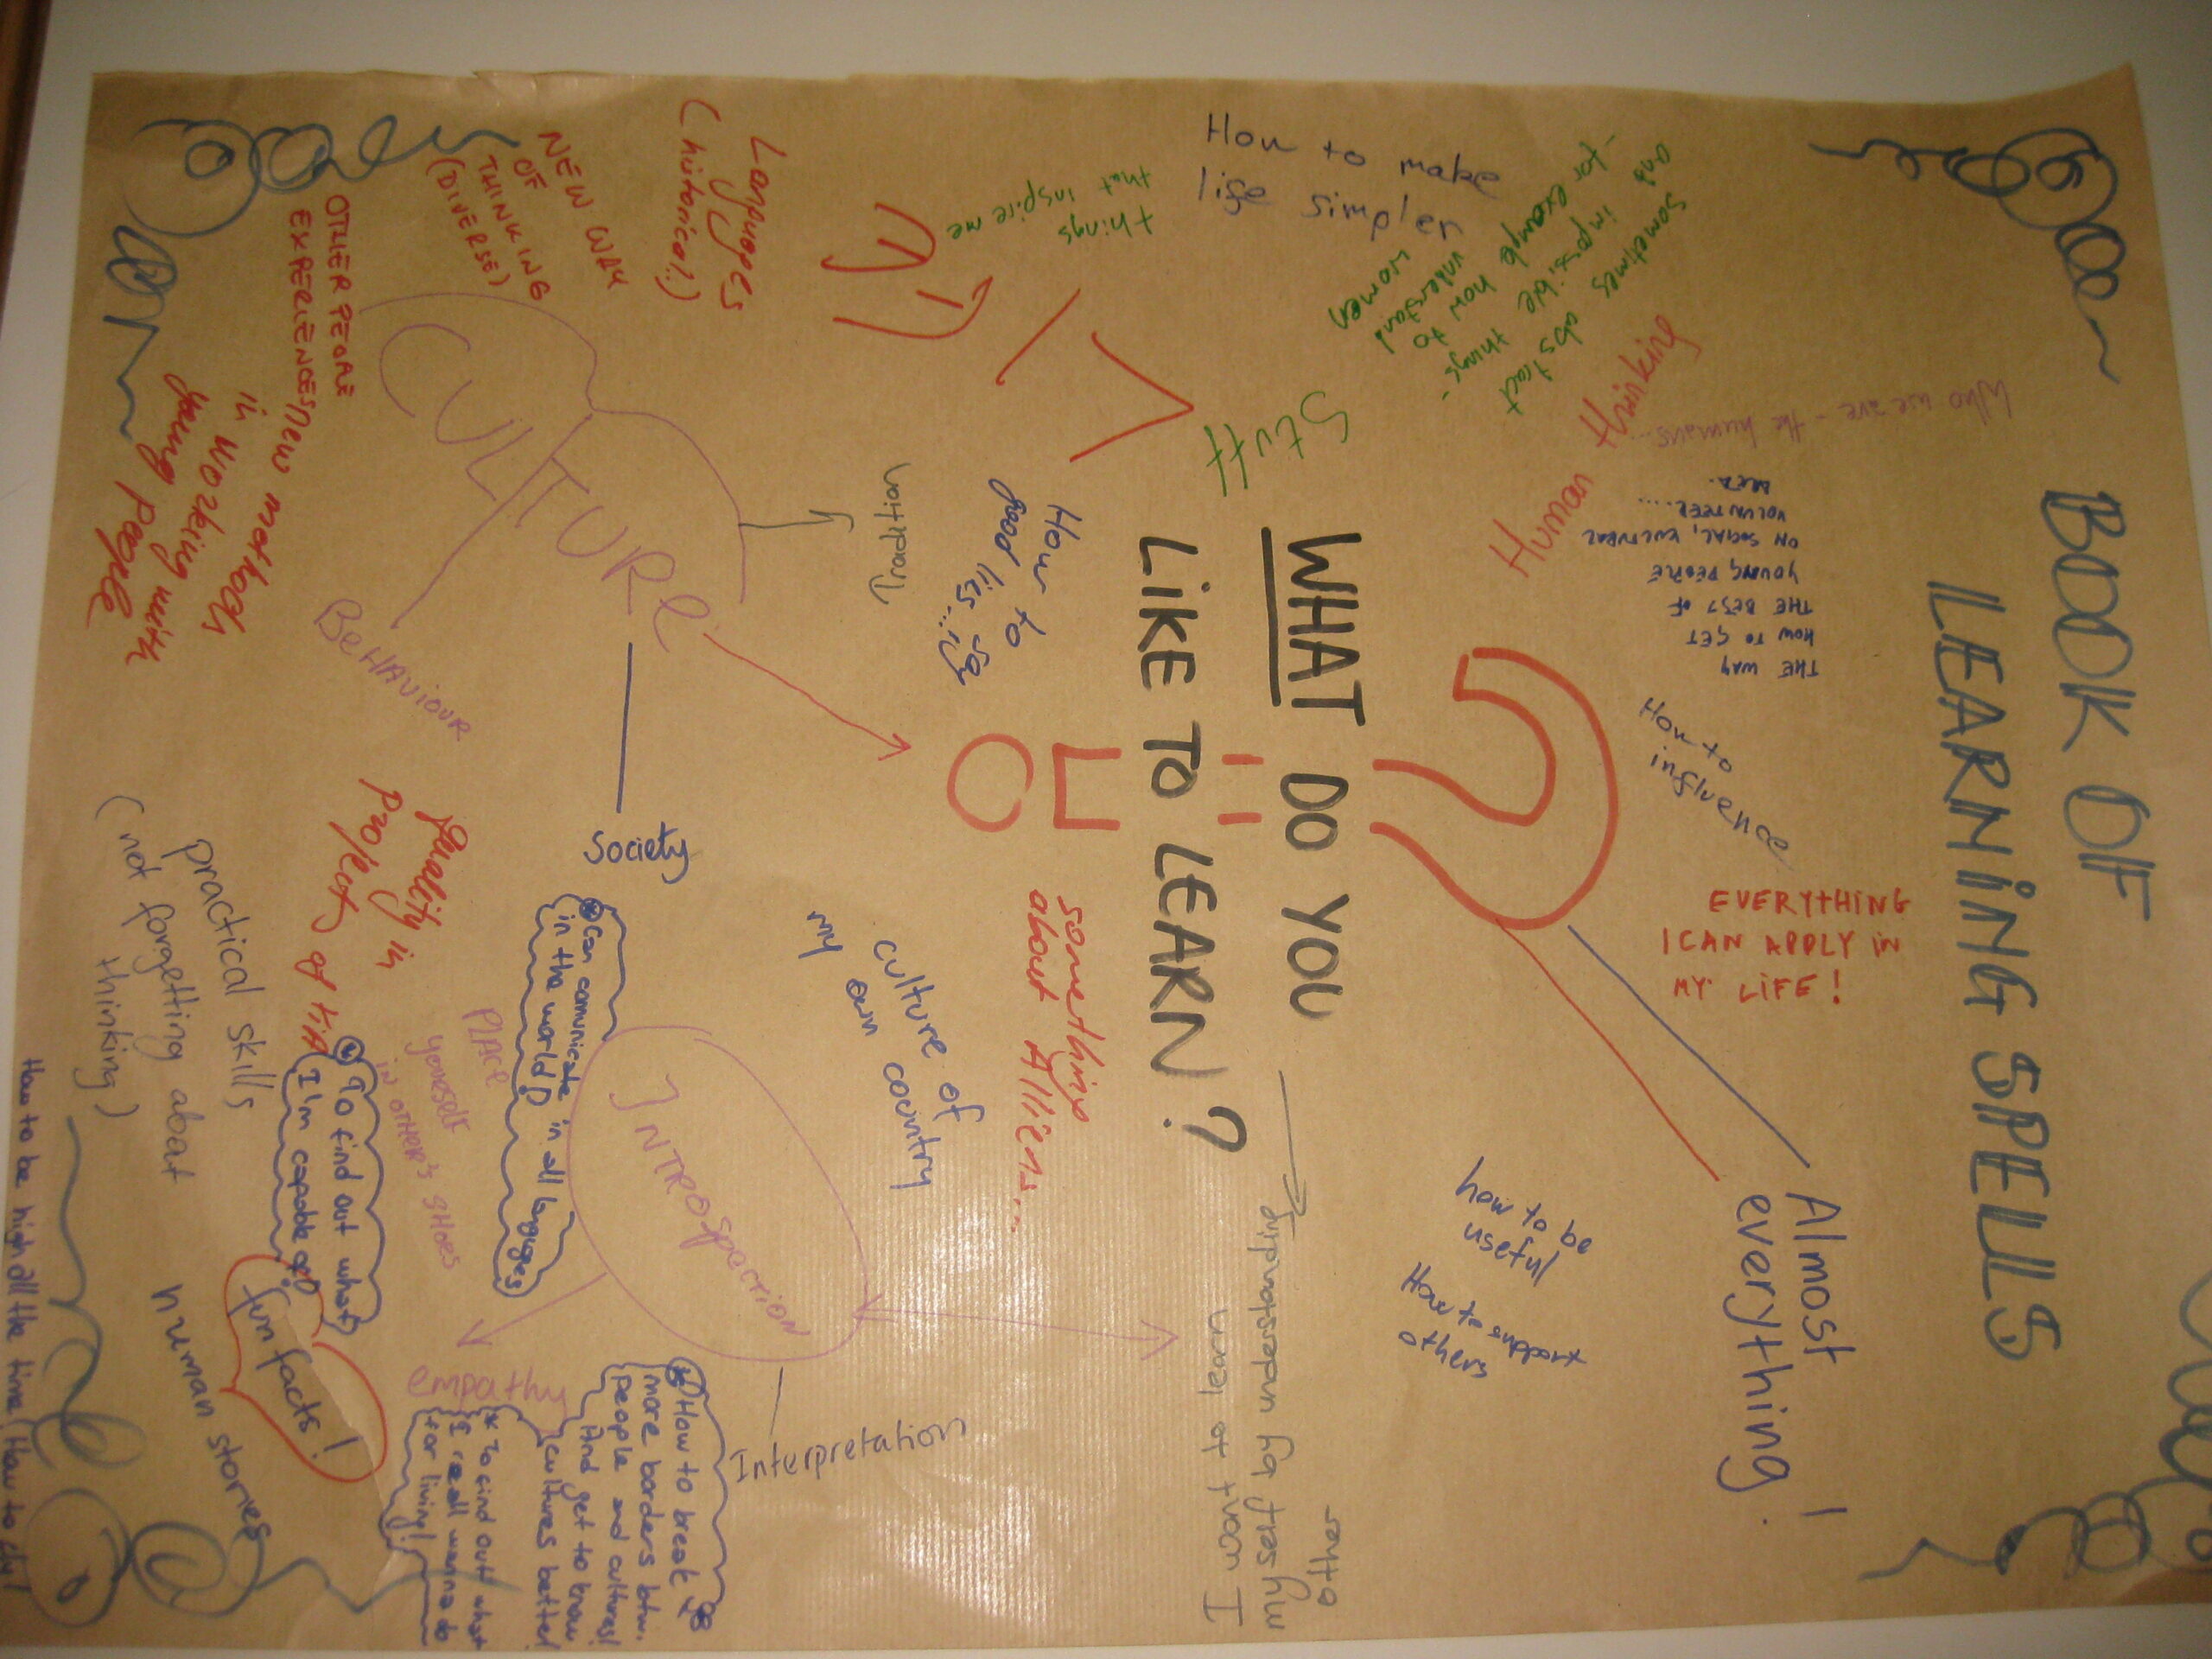 BOOK OF
LEARNING SPELLS
WHAT DO YOU
LIKE TO LEARN?
Who we are - the humans...
THE WAY
HOW TO GET
THE BEST OF
YOUNG PEOPLE
ON SOCIAL, CULTURAL
VOLUNTEER....
AREA.
How to
influence
EVERYTHING
I CAN APPLY IN
MY LIFE!
Almost
everything!
Human thinking
and sometimes abstract
impossible things -
-for example how to
understand
women
Stuff
How to make
life simpler
things
that inspire me
how to be
useful
How to
others
I want to learn
myself by understanding
other
How to say
good lies...
something
about Alliens...
culture of
my own country
Tradition
Languages
(historical..)
NEW WAY
OF
THINKING
(DIVERSE)
OTHER PEOPLE
EXPERIENCES
CULTURE
BEHAVIOUR
Society
new methods
in working with
young people
INTROSPECTION
Interpretation
empathy
PLACE
YOURSELF
IN OTHER'S SHOES
Can comunicate in all languages
in the world?
quality in
projects of YiA
To find out what
I'm capable of?
How to break
more borders btw.
people and cultures!
And get to know
cultures better!
* To find out what
I reall wanna do
for living!
practical skills
(not forgetting about
thinking)
fun facts!
human stories
How to be high all the time! How to fly!